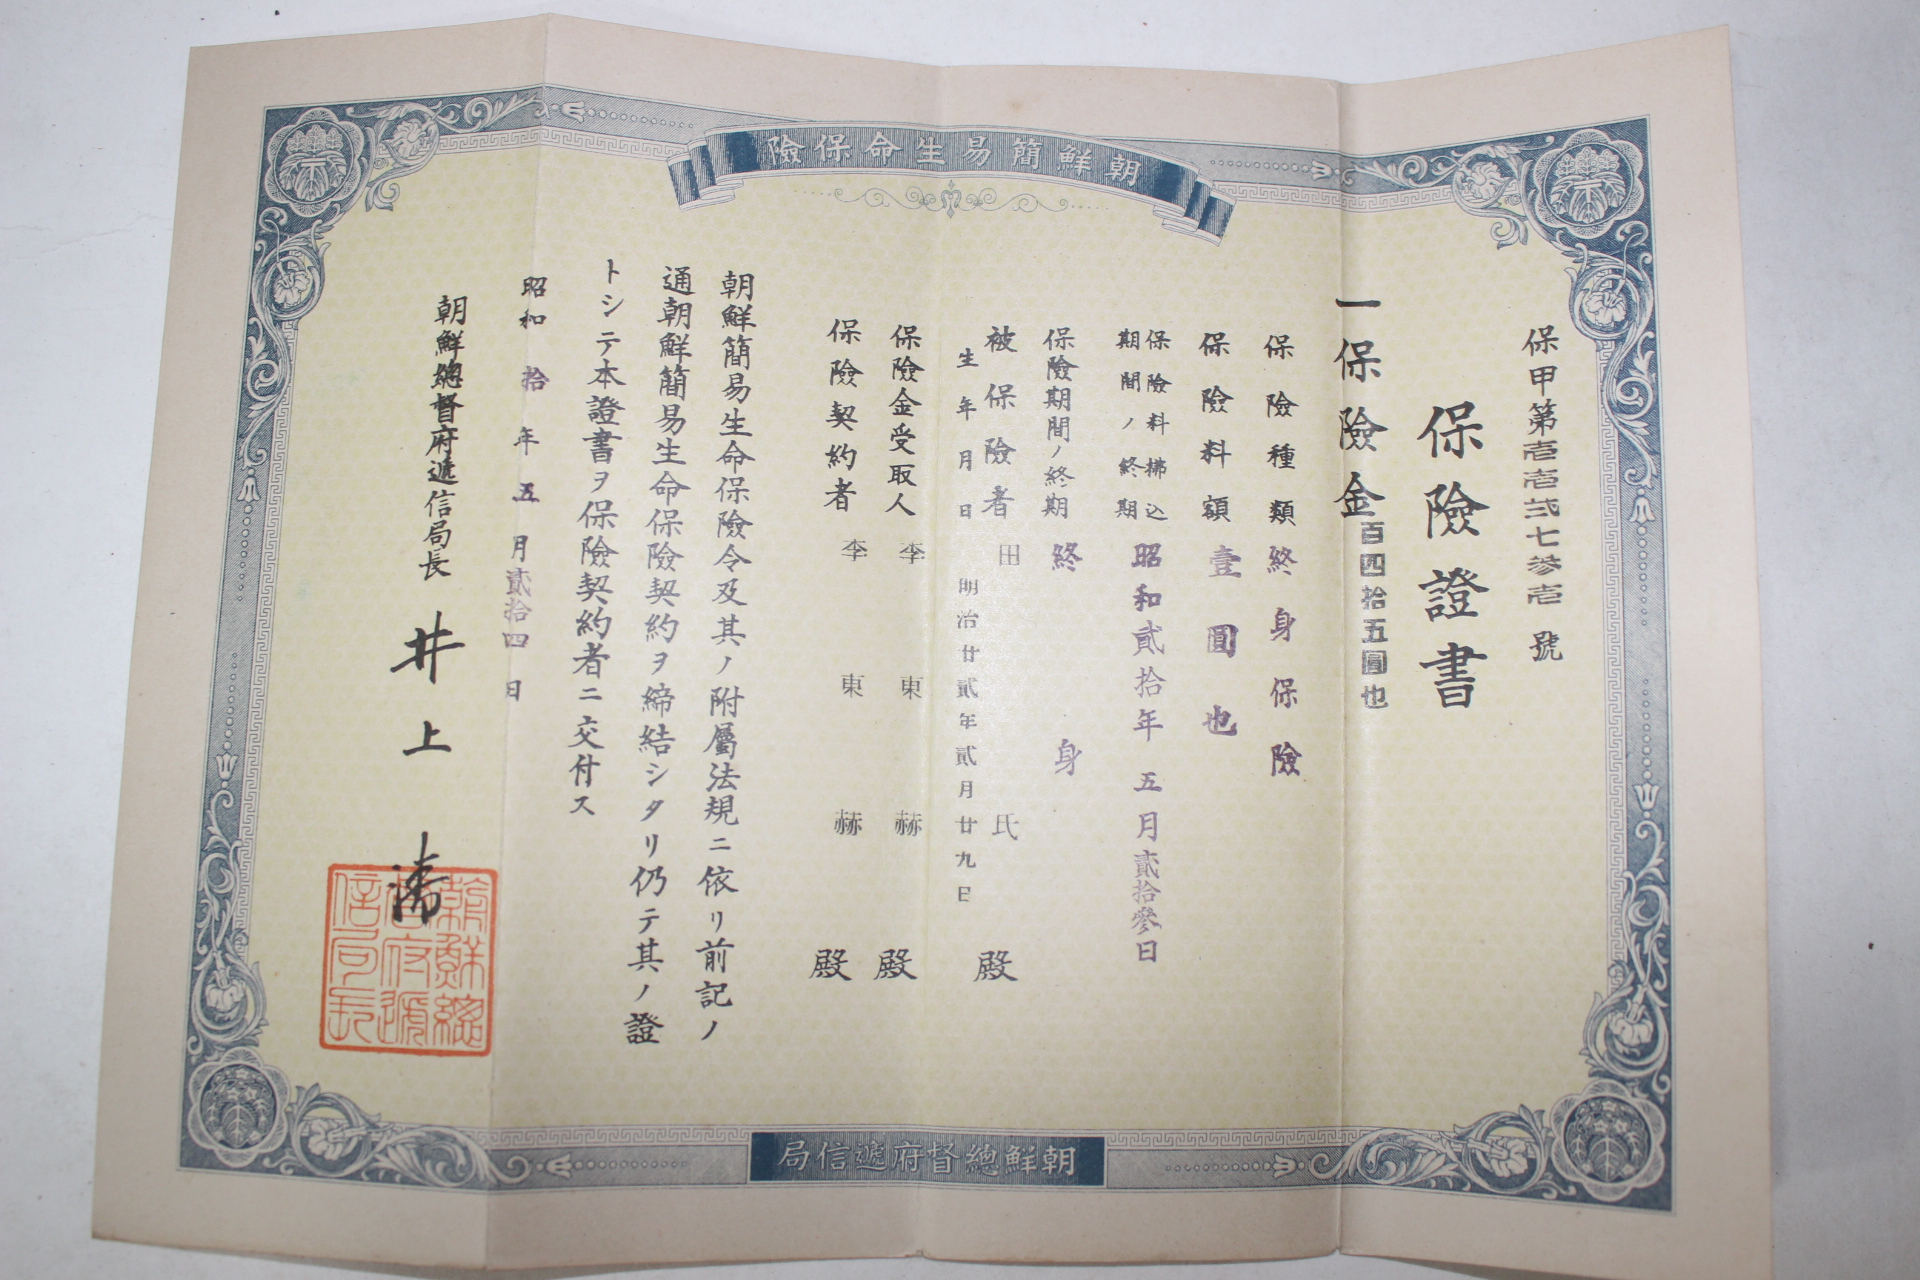 朝鮮簡易生命保險
保甲第壱壱弐七参壱號
保險證書
一保險金百四拾五圓也
保險種類終身保險
保險料額壹圓也
保險料拂込期間ノ終期昭和貳拾年五月貳拾參日
保險期間ノ終期終身
被保險者田氏殿
生年月日明治廿貳年貳月廿九日
保險金受取人李東赫殿
保險契約者李東赫殿
朝鮮簡易生命保險令及其ノ附屬法規ニ依リ前記ノ
通朝鮮簡易生命保險契約ヲ締結シタリ仍テ其ノ證
トシテ本證書ヲ保險契約者ニ交付ス
昭和拾年五月貳拾四日
朝鮮總督府遞信局長井上清
朝鮮總督府遞信局長
朝鮮總督府遞信局